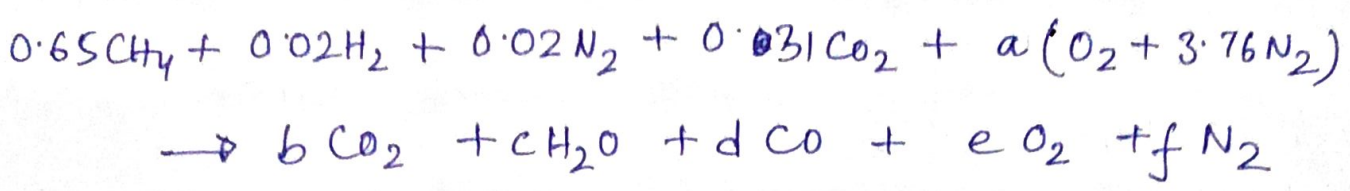 0.65 CH₄ + 0.02 H₂ + 0.02 N₂ + 0.031 CO₂ + a (O₂ + 3.76 N₂)
→ b CO₂ + c H₂O + d CO + e O₂ + f N₂